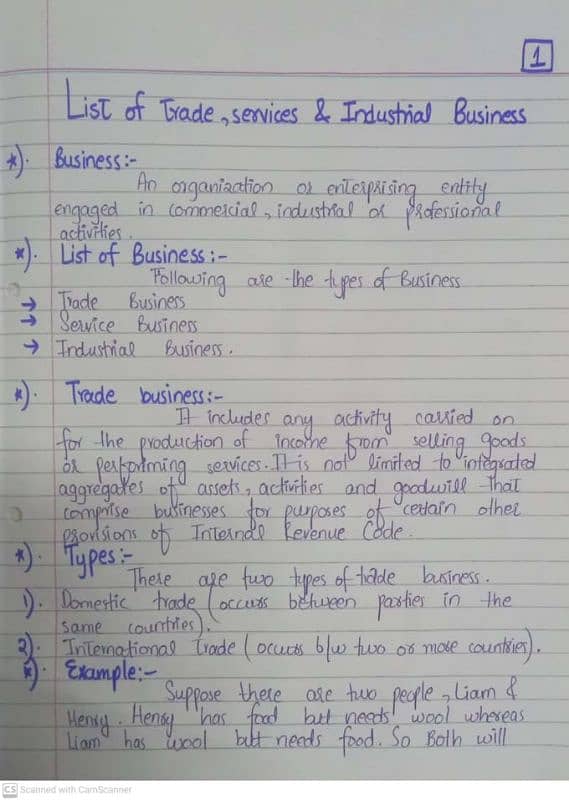 1
List of Trade, services & Industrial Business
*). Business:-
An organization or enterprising entity
engaged in commercial, industrial or professional
activities.
*). List of Business:-
Following are the types of Business
→ Trade Business
→ Service Business
→ Industrial Business.
*). Trade business:-
It includes any activity carried on
for the production of income from selling goods
or performing services. It is not limited to integrated
aggregates of assets, activities and goodwill that
comprise businesses for purposes of certain other
provisions of Internal Revenue Code.
*). Types:-
There are two types of trade business.
1). Domestic trade (occurs between parties in the
same countries).
2). International Trade (occurs b/w two or more countries).
*). Example:-
Suppose there are two people, Liam &
Henry. Henry has food but needs wool whereas
Liam has wool but needs food. So Both will
CS Scanned with CamScanner